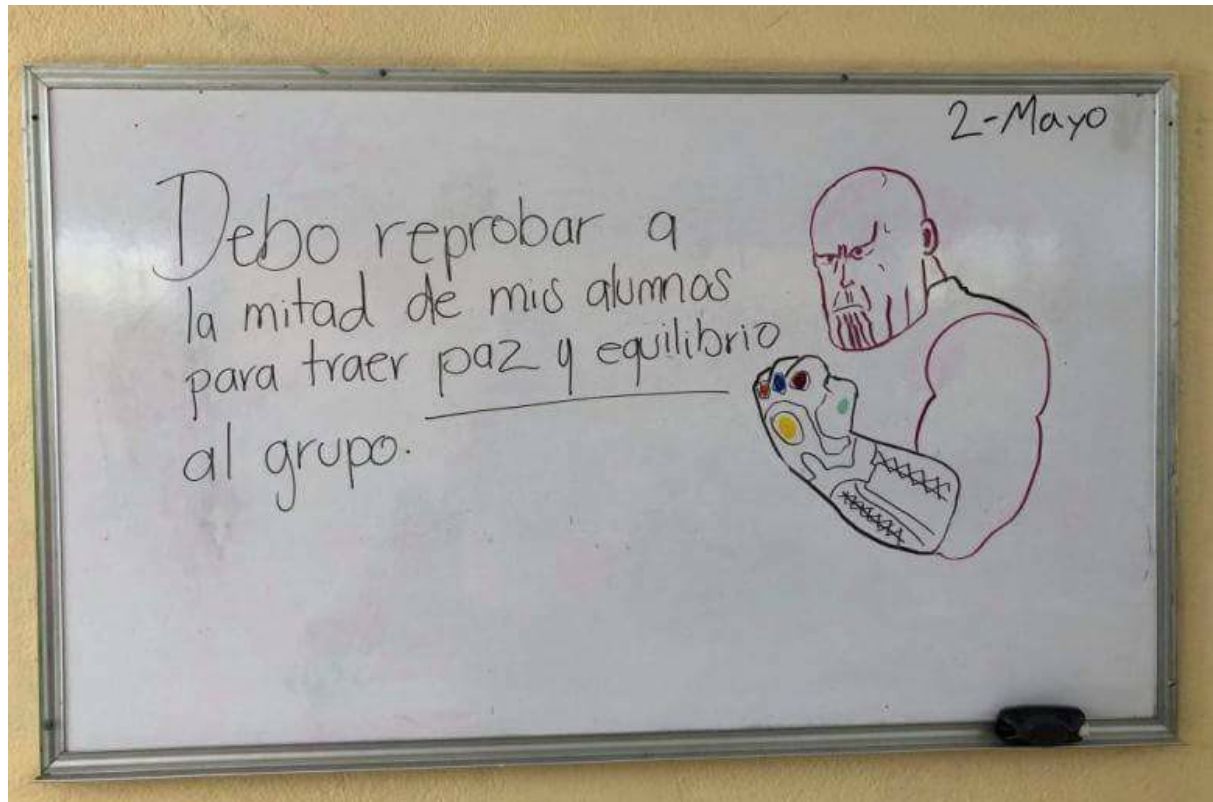 2-Mayo
Debo reprobar a
la mitad de mis alumnos
para traer paz y equilibrio
al grupo.